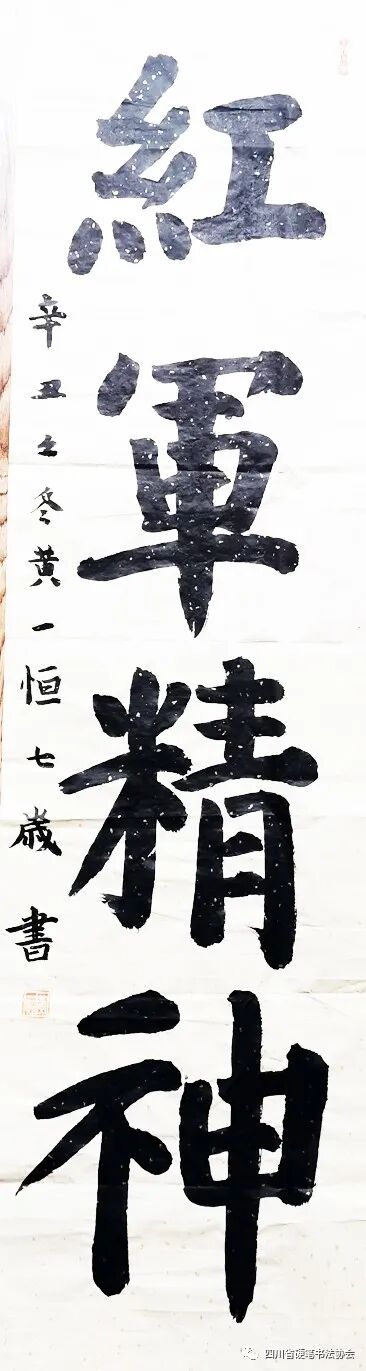 紅軍精神
辛丑之冬黄一恒七歲書
四川省硬笔书法协会